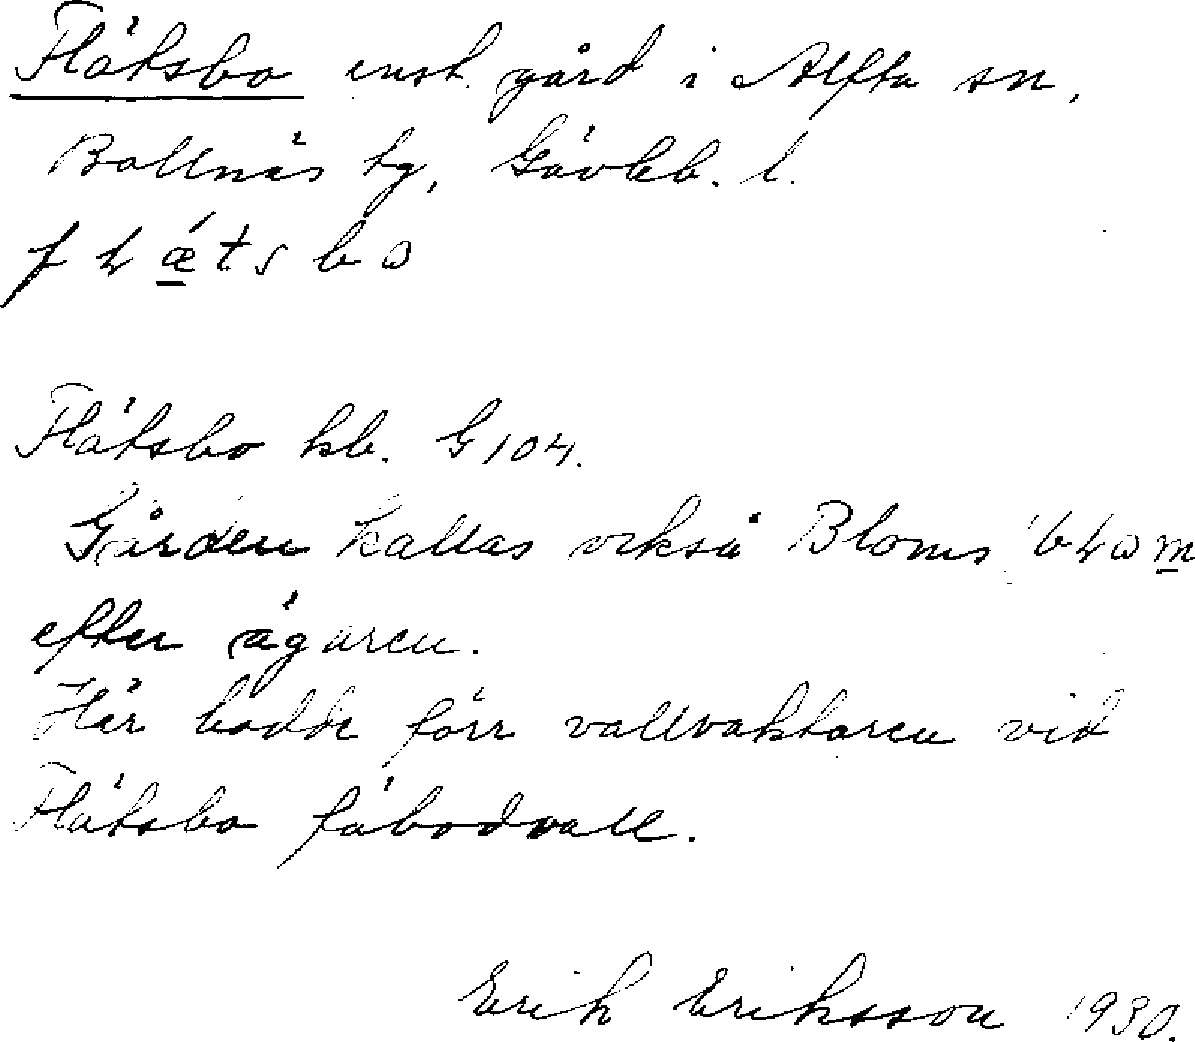 Flätsbo ensl. gård i Alfta sn,
Bollnäs tg, Gävleb. l.
f ɫ ǽ t s b ω
Flätsbo kb. G 104.
Gården kallas också Bloms ˈbɫωm
efter ägaren.
Här bodde förr vallvaktaren vid
Flätsbo fäbodvall.
Erik Eriksson 1930.